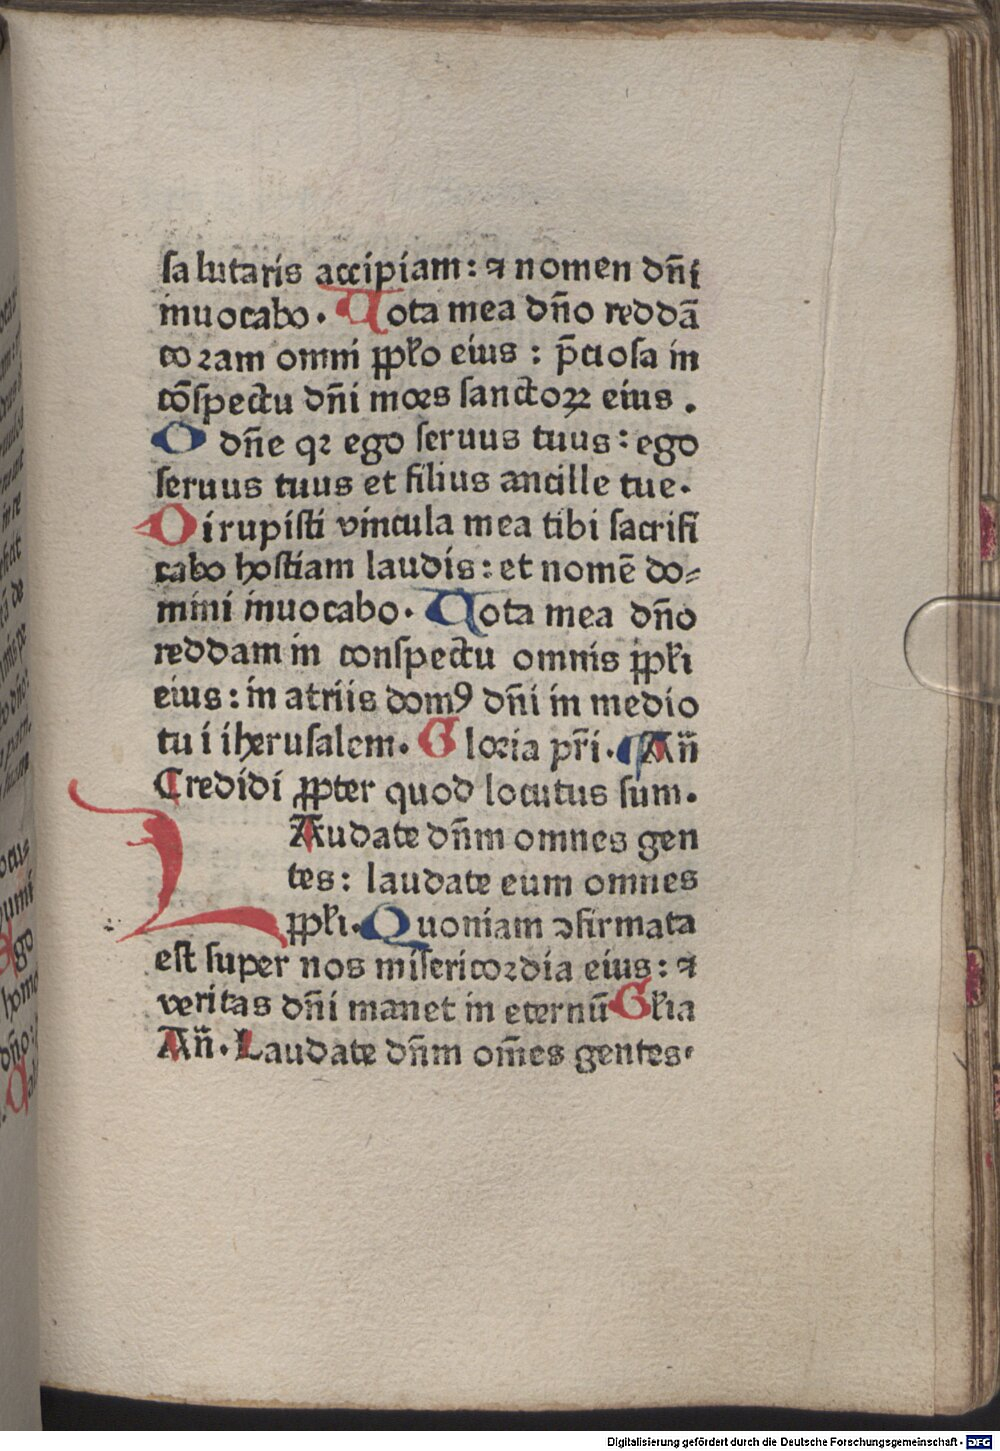 ſalutaris accipiam: ⁊ nomen dn̄i
inuocabo. Uota mea dn̄o reddā
coꝛam omni ꝓplo eius : p̄cioſa in
cōſpectu dn̄i moꝛs ſanctoꝝ eius .
O dn̄e qꝛ ego ſeruus tuus : ego
ſeruus tuus et filius ancille tue.
Dirupiſti vincula mea tibi ſacrifi
cabo hoſtiam laudis: et nomē do⸗
mini inuocabo. Uota mea dn̄o
reddam in conſpectu omnis ꝓpli
eius: in atriis domꝰ dn̄i in medio
tui iheruſalem. Gloꝛia pr̄i. An̄
Credidi ꝓpter quod locutus ſum.
LAudate dn̄m omnes gen
tes: laudate eum omnes
ꝓpli. Quoniam ꝯfirmata
eſt ſuper nos miſericoꝛdia eius: ⁊
veritas dn̄i manet in eternū Glia
An̄. Laudate dn̄m om̄es gentes.
Digitalisierung gefördert durch die Deutsche Forschungsgemeinschaft - DFG